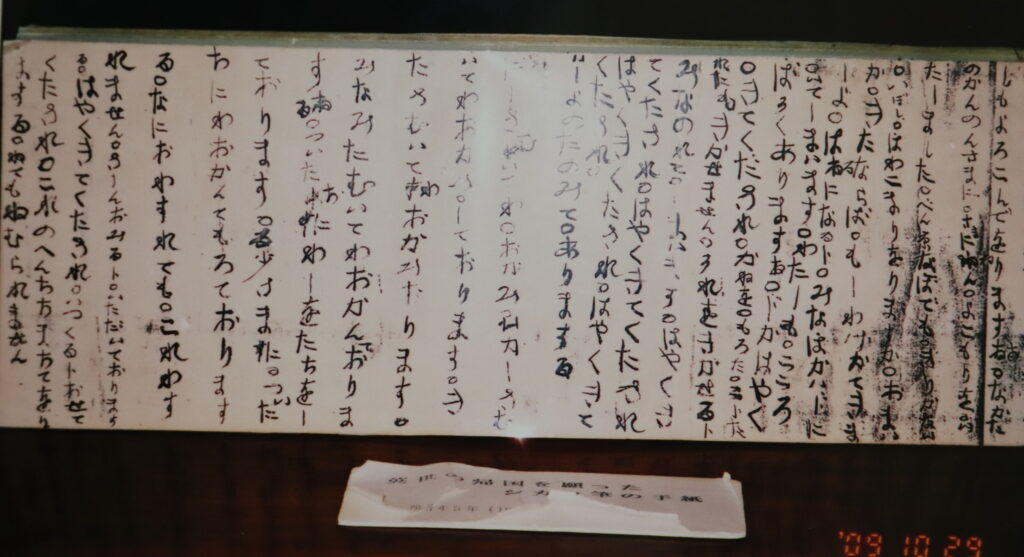 しもよろこんでをりまする。なかた
のかんのんさまに。さまにねん。よこもりをいた
たしました。べん京なぼでもきりかない
。いぼし。ほわこまりをりますか。おまい
か。きたならば。もしわけかてきま
しよ。はるになるト。みなほかいドに
。いてしまいます。わたしも。こころ
ぼそくありまする。ドかはやく
。きてくだされ。かねを。もろた。こトた
れにもきかせません。それをきかせるト
みなのれて。しまいます。はやくき
てくたされ。はやくきてくたされ
はやくきてくたされ。はやくき
くたされ。はやくきて
いしよのたのみて。ありまする
にしさむいてわ。おかみ。ひかしさむ
いてわおかみ。しております。き
たさむいてわおかみおります。
みなみたむいてわおかんておりま
する。ついたちにわしをたちをし
ております。ゐ少さまに。ついた
ちにわおかんてもろております
る。なにおわすれても。これわす
れません。さしんおみるト。いただいております
る。はやくきてくたされ。いつくるトおせて
くたされ。これのへんちちまちてをり
まする。ねてもねむられません
帰国を願った
シカ 筆の手紙
45年
'09 10 29